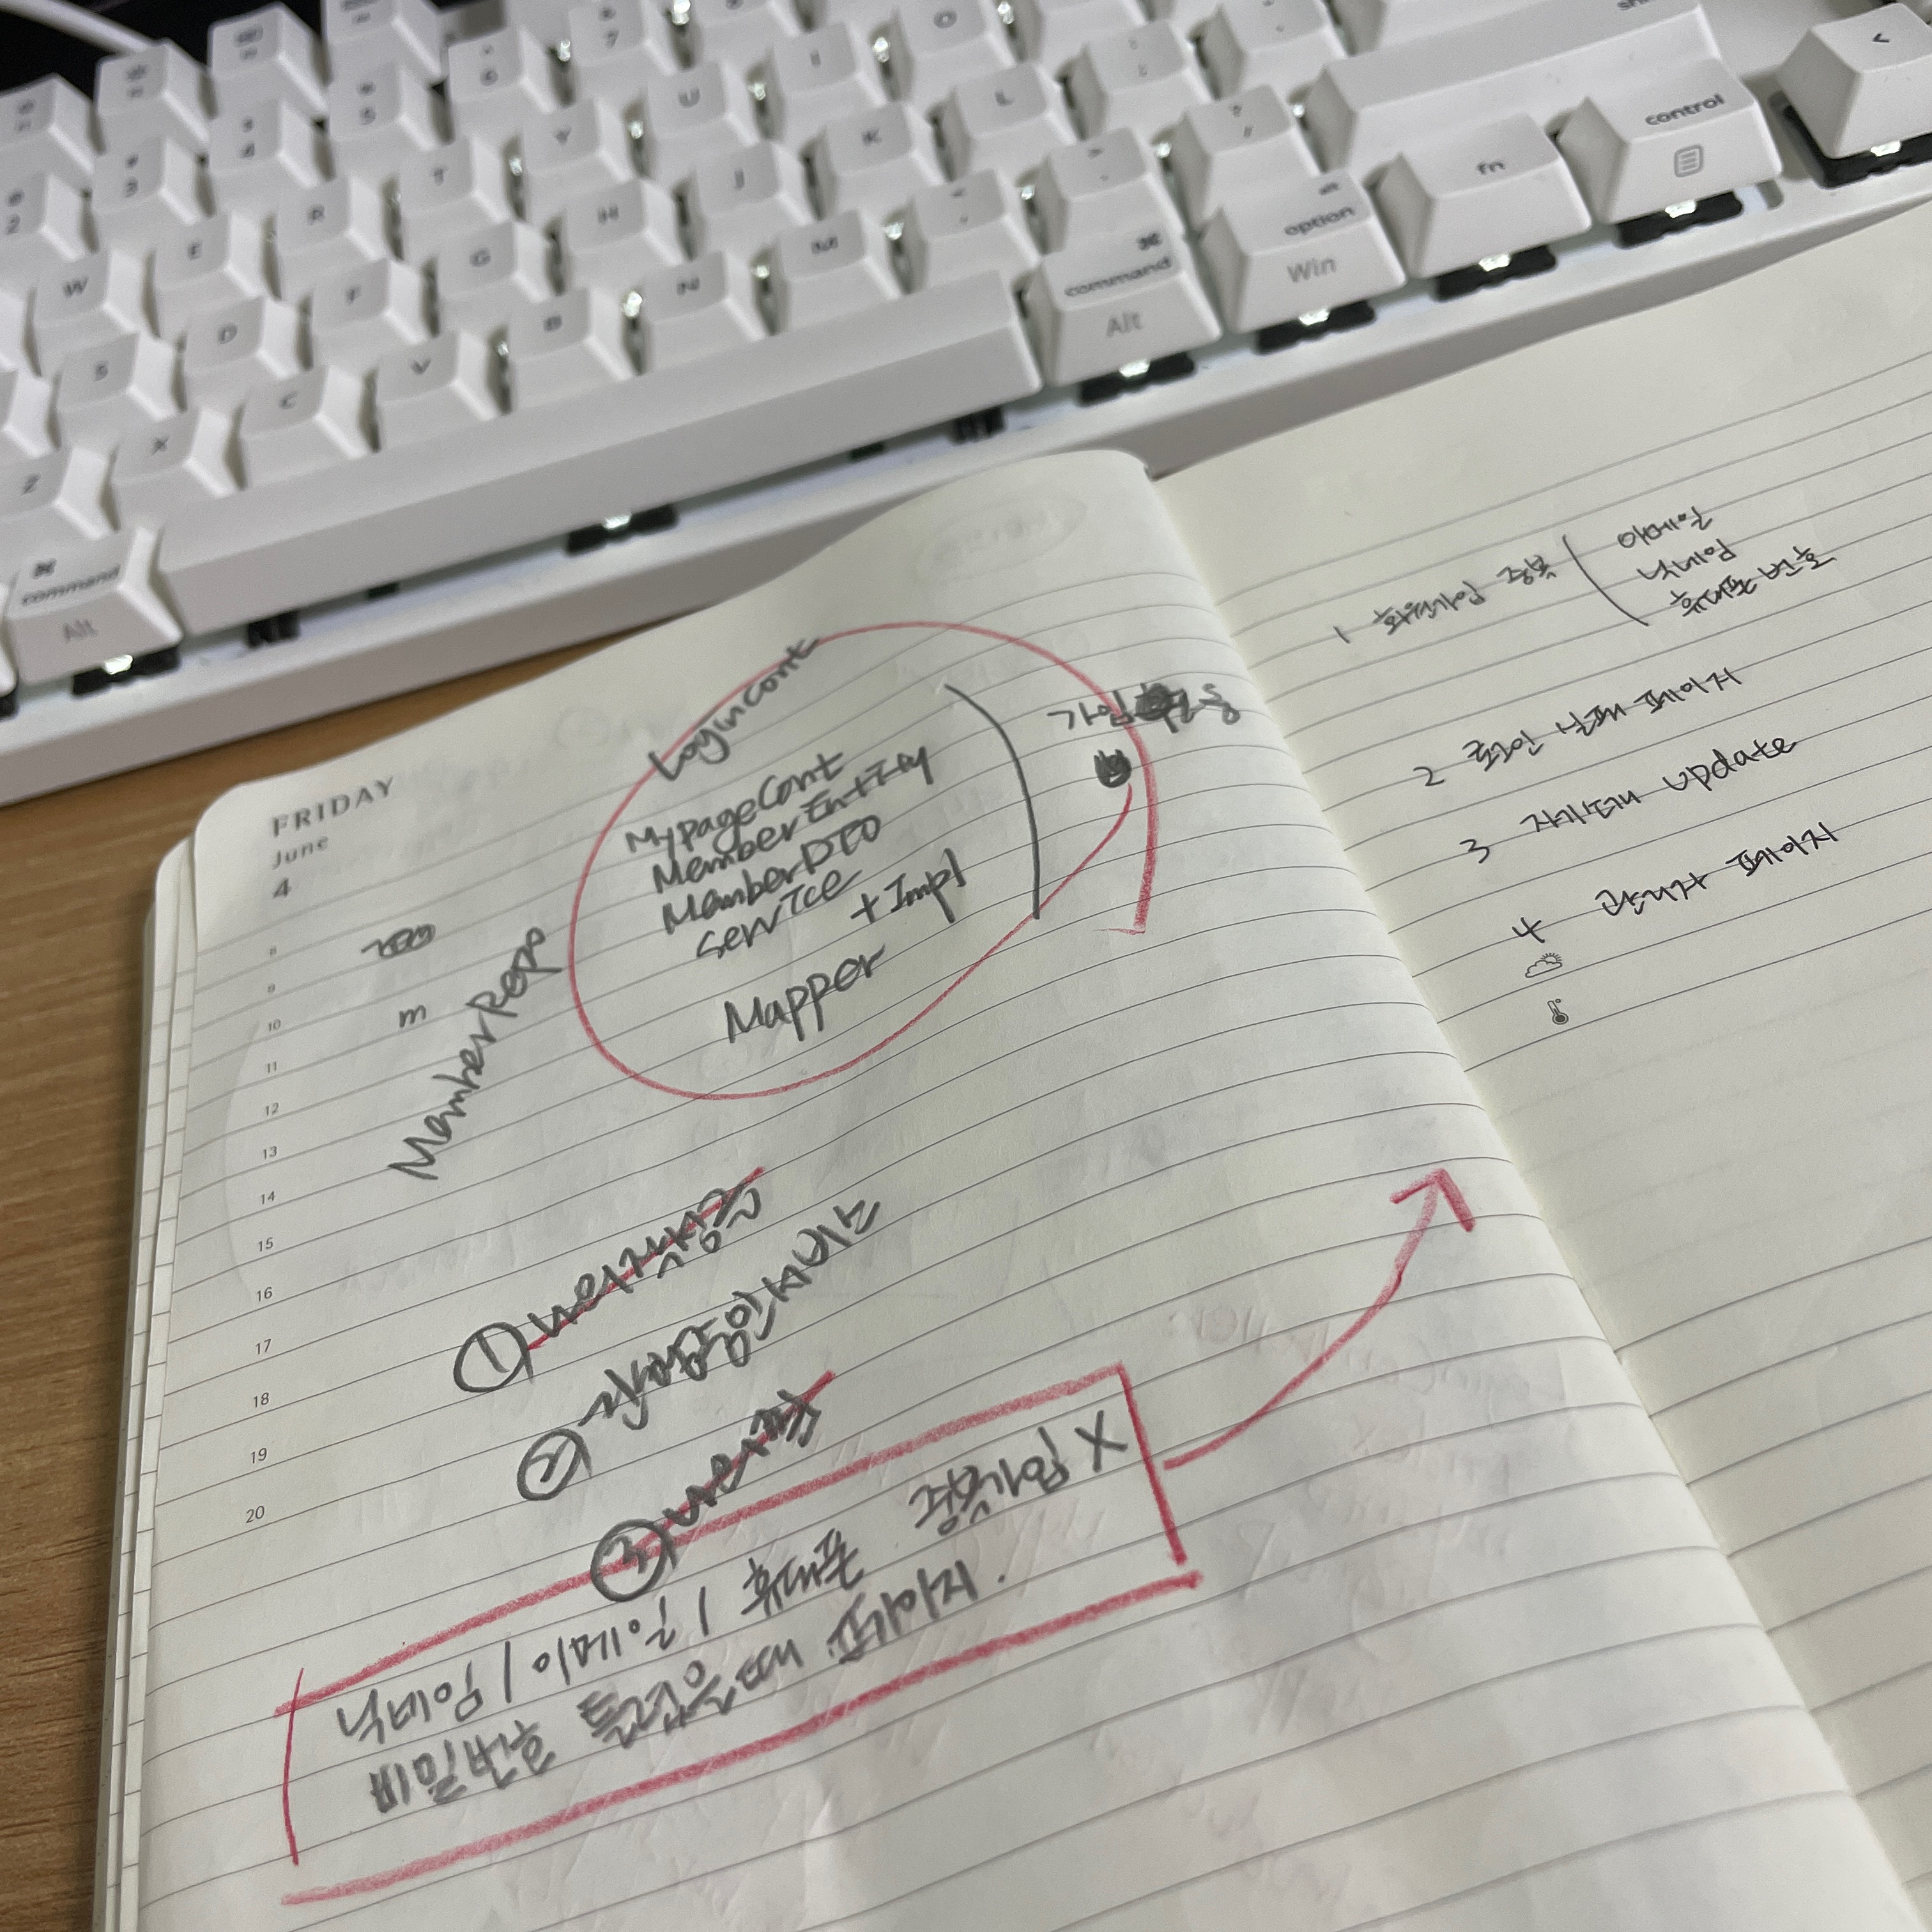 2
3
4
5
6
7
W
E
R
T
Y
U
I
O
S
D
F
G
H
J
K
L
Z
X
C
V
B
N
M
?
/
command
Alt
command
Alt
option
Win
fn
control
FRIDAY
June
4
8
9
10
11
12
13
14
15
16
17
18
19
20
m
MemberRepo
LoginCont
MypageCont
MemberEntity
MemberDTO
service
+Impl
Mapper
가입
①
② 서비스
③
닉네임 / 이메일 / 휴대폰 중복가입 X
비밀번호 틀렸을때 페이지.
1 회원가입 중복
이메일
닉네임
휴대폰 번호
2 로그인 실패 페이지
3 자기소개 update
4 관리자 페이지